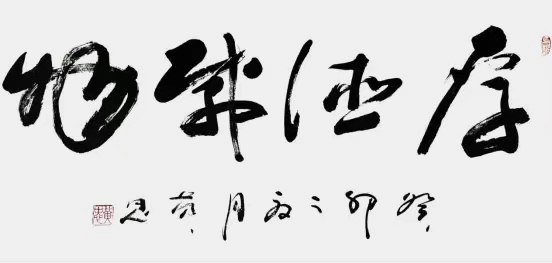 厚德載物
癸卯之夏月黄